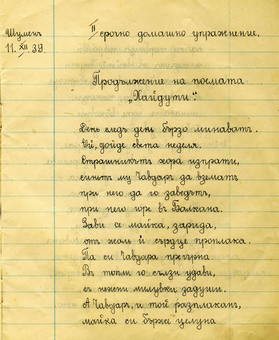 Шуменъ
11. XII 39.
II срочно домашно упражнение.
Продължение на поемата
„Хайдути“.
День следъ день бързо минаватъ.
Ой, дойде света неделя.
Страшникътъ хора изпрати,
синътъ му Чавдаръ да взематъ
при него да го заведатъ,
при него горе въ Балкана.
Зави се майка, зарида,
отъ жаль ѝ сърдце проплака.
Па си Чавдара прегърна
Въ топли го сълзи удави,
съ нежни милувки задуши.
А Чавдаръ, и той разплаканъ,
майка си бърже целуна